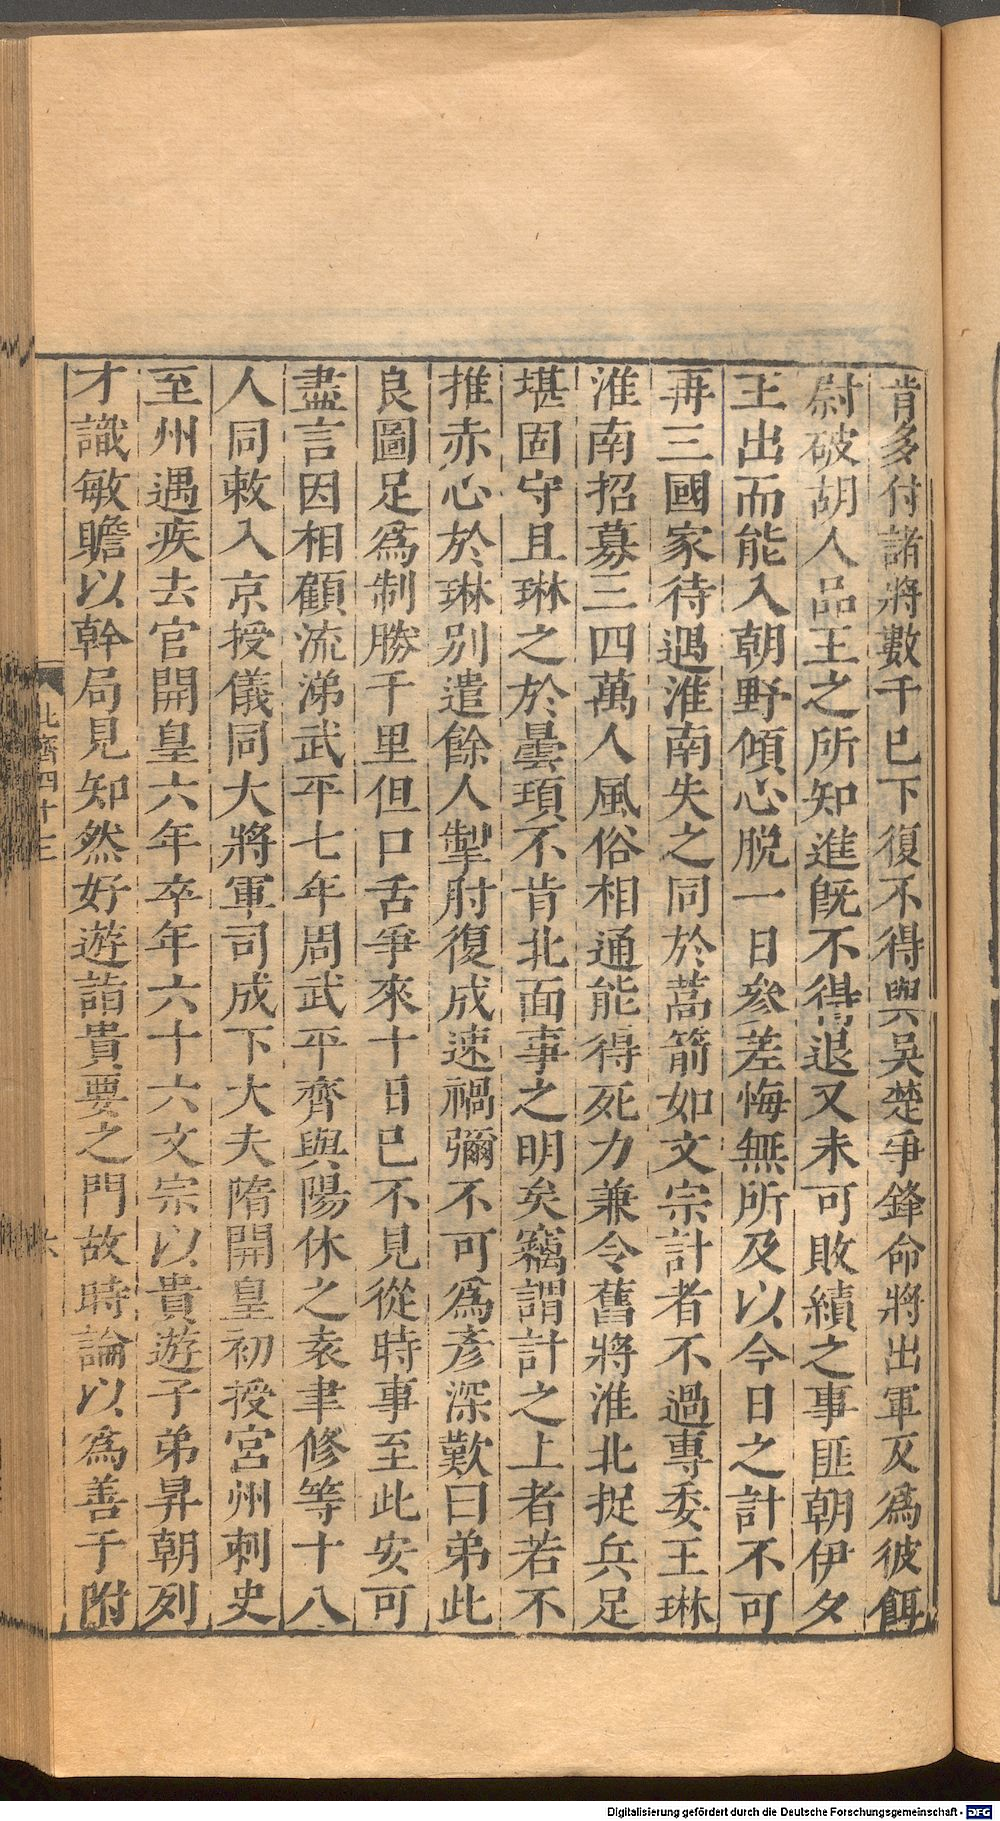 肯多付諸將數千已下復不得與吳楚爭鋒命將出軍反爲彼餌
尉破胡人品王之所知進旣不得退又未可敗績之事匪朝伊夕
王出而能入朝野傾心脫一日參差悔無所及以今日之計不可
再三國家待遇淮南失之同於蒿箭如文宗計者不過專委王琳
淮南招募三四萬人風俗相通能得死力兼令舊將淮北捉兵足
堪固守且琳之於曇頊不肯北面事之明矣竊謂計之上者若不
推赤心於琳別遣餘人掣肘復成速禍彌不可爲彥深歎曰弟此
良圖足爲制勝千里但口舌爭來十日已不見從時事至此安可
盡言因相顧流涕武平七年周武平齊與陽休之袁聿修等十八
人同敕入京授儀同大將軍司成下大夫隋開皇初授宮州刺史
至州遇疾去官開皇六年卒年六十六文宗以貴遊子弟昇朝列
才識敏贍以幹局見知然好遊詣貴要之門故時論以爲善于附
北齊四十三
六
Digitalisierung gefördert durch die Deutsche Forschungsgemeinschaft - DFG